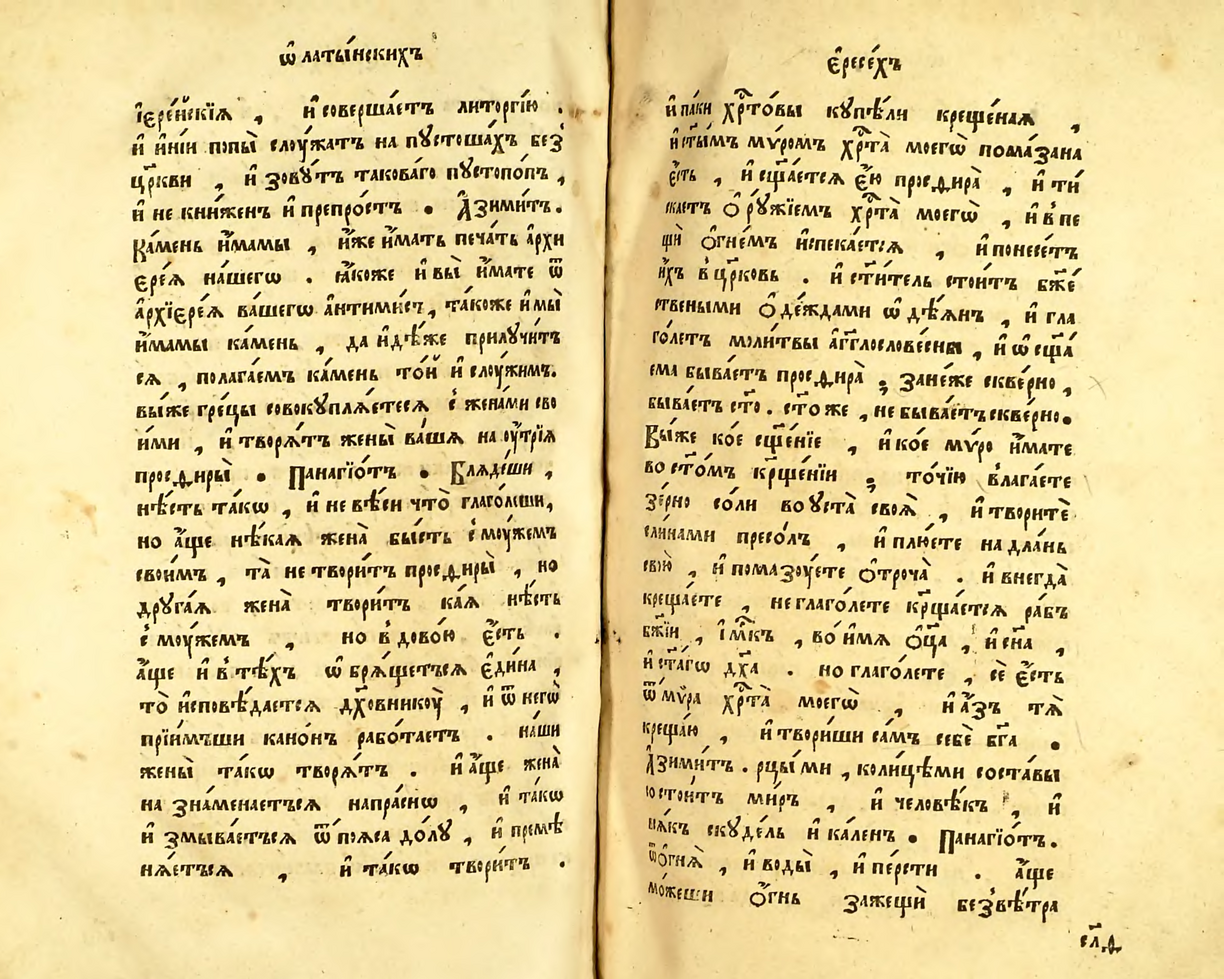 ѿ латы́нскихъ
іере́йскїѧ , и҆ соверша́етъ литоргі́ю .
и҆ и҆ні́и попы̀ слѹ́жатъ на пꙋстоша́хъ без̾
цр҃кви , и҆ зовꙋ́тъ таково́го пꙋстопо́пъ ,
и҆ не кни́женъ и҆ препро́стъ . А҆зими́тъ .
Ка́мень и҆́мамы , и҆́же и҆́мать печа́ть а҆рхи
ере́ѧ на́шегѡ . ꙗ҆́коже и҆ вы̀ и҆́мате ѿ
а҆рхїере́ѧ ва́шегѡ а҆нтими́съ , та́коже и҆ мы̀
и҆́мамы ка́мень , да и҆дѣ́же прилꙋчи́тъ
сѧ , полага́емъ ка́мень то́й и҆ слѹ́жимъ .
вы́же гре́цы совокꙋплѧ́етесѧ с̾ жена́ми сво
и́ми , и҆ творѧ́тъ жены̀ ва́шѧ на ѹ҆́трїѧ
просѳиры̀ . Панагїѡ́тъ . Блѧде́ши ,
нѣ́сть та́кѡ , и҆ не вѣ́си что̀ глаго́леши ,
но а҆́ще нѣ́каѧ жена̀ бы́сть с̾ мѹ́жемъ
свои́мъ , та̀ не твори́тъ просѳиры̀ , но
дрꙋга́ѧ жена̀ твори́тъ ка́ѧ нѣ́сть
с̾ мѹ́жемъ , но в̾дово́ю є҆́сть .
а҆́ще и҆ в̾ тѣ́хъ ѡ҆брѧ́щетъсѧ є҆ди́на ,
то̀ и҆сповѣ́даетсѧ дх҃овникѹ̀ , и҆ ѿ негѡ̀
прїи́мъши кано́нъ рабо́таетъ . на́ши
жены̀ та́кѡ творѧ́тъ . и҆ а҆́ще жена̀
на зна́менаетъсѧ напра́снѡ , и҆ та́кѡ
и҆ змыва́етъсѧ ѿ по́ѧса до́лꙋ , и҆ премѣ
нѧ́етъсѧ , и҆ та́кѡ твори́тъ .
є҆ресе́хъ
и҆ па́ки хрⷭ҇то́вы кꙋпѣ́ли креще́наѧ ,
и҆ ст҃ы́мъ мѵ́ромъ хрⷭ҇та̀ моегѡ̀ пома́зана
є҆́сть , и҆ сщ҃а́етсѧ є҆́ю просѳира̀ , и҆ ти́
скаетъ ѻ҆рꙋ́жїемъ хрⷭ҇та̀ моегѡ̀ , и҆ в̾ пе
щѝ ѻ҆гне́мъ и҆спека́етсѧ , и҆ понесе́тъ
и҆́хъ в̾ цр҃ковь . и҆ ст҃и́тель стои́тъ бж҃е́
ствеными ѻ҆де́ждами ѡ҆дѣ́ѧнъ , и҆ гла
го́летъ мл҃и́твы а҆́гг҃лословесны , и҆ ѡ҆сщ҃а́
ема быва́етъ просѳира̀ ; зане́же скве́рно ,
быва́етъ ст҃о . ст҃о же , не быва́етъ скве́рно .
Вы́же ко́е сщ҃е́нїе , и҆ ко́е мѵ́ро и҆́мате
во ст҃о́мъ кр҃ще́нїи ; то́чїю влага́ете
зе́рно со́ли во ꙋста̀ своѧ̀ , и҆ творитѐ
сли́нами пресо́лъ , и҆ плю́ете на дла́нь
свою̀ , и҆ помазѹ́ете ѻ҆троча̀ . и҆ внегда̀
креща́ете , не глаго́лете кр҃ща́етсѧ ра́бъ
бж҃їи , і҆м҃къ , во и҆́мѧ ѻ҆ц҃а , и҆ сн҃а ,
и҆ ст҃а́гѡ дх҃а . но глаго́лете , сѐ є҆́сть
ѿ мѵ́ра хрⷭ҇та̀ моегѡ̀ , и҆ а҆́зъ тѧ̀
креща́ю , и҆ твори́ши са́мъ себѐ бг҃а .
А҆зими́тъ . рцы́ ми , коли́цѣми соста́вы
состои́тъ ми́ръ , и҆ человѣ́къ , и҆
ꙗ҆́къ скꙋде́ль и҆ ка́ленъ . Панагїѡ́тъ .
ѿ ѻ҆гнѧ̀ , и҆ воды̀ , и҆ пе́рсти . а҆́ще
мо́жеши ѻ҆́гнь заже́щи без̾ вѣ́тра
сл҃ѳ